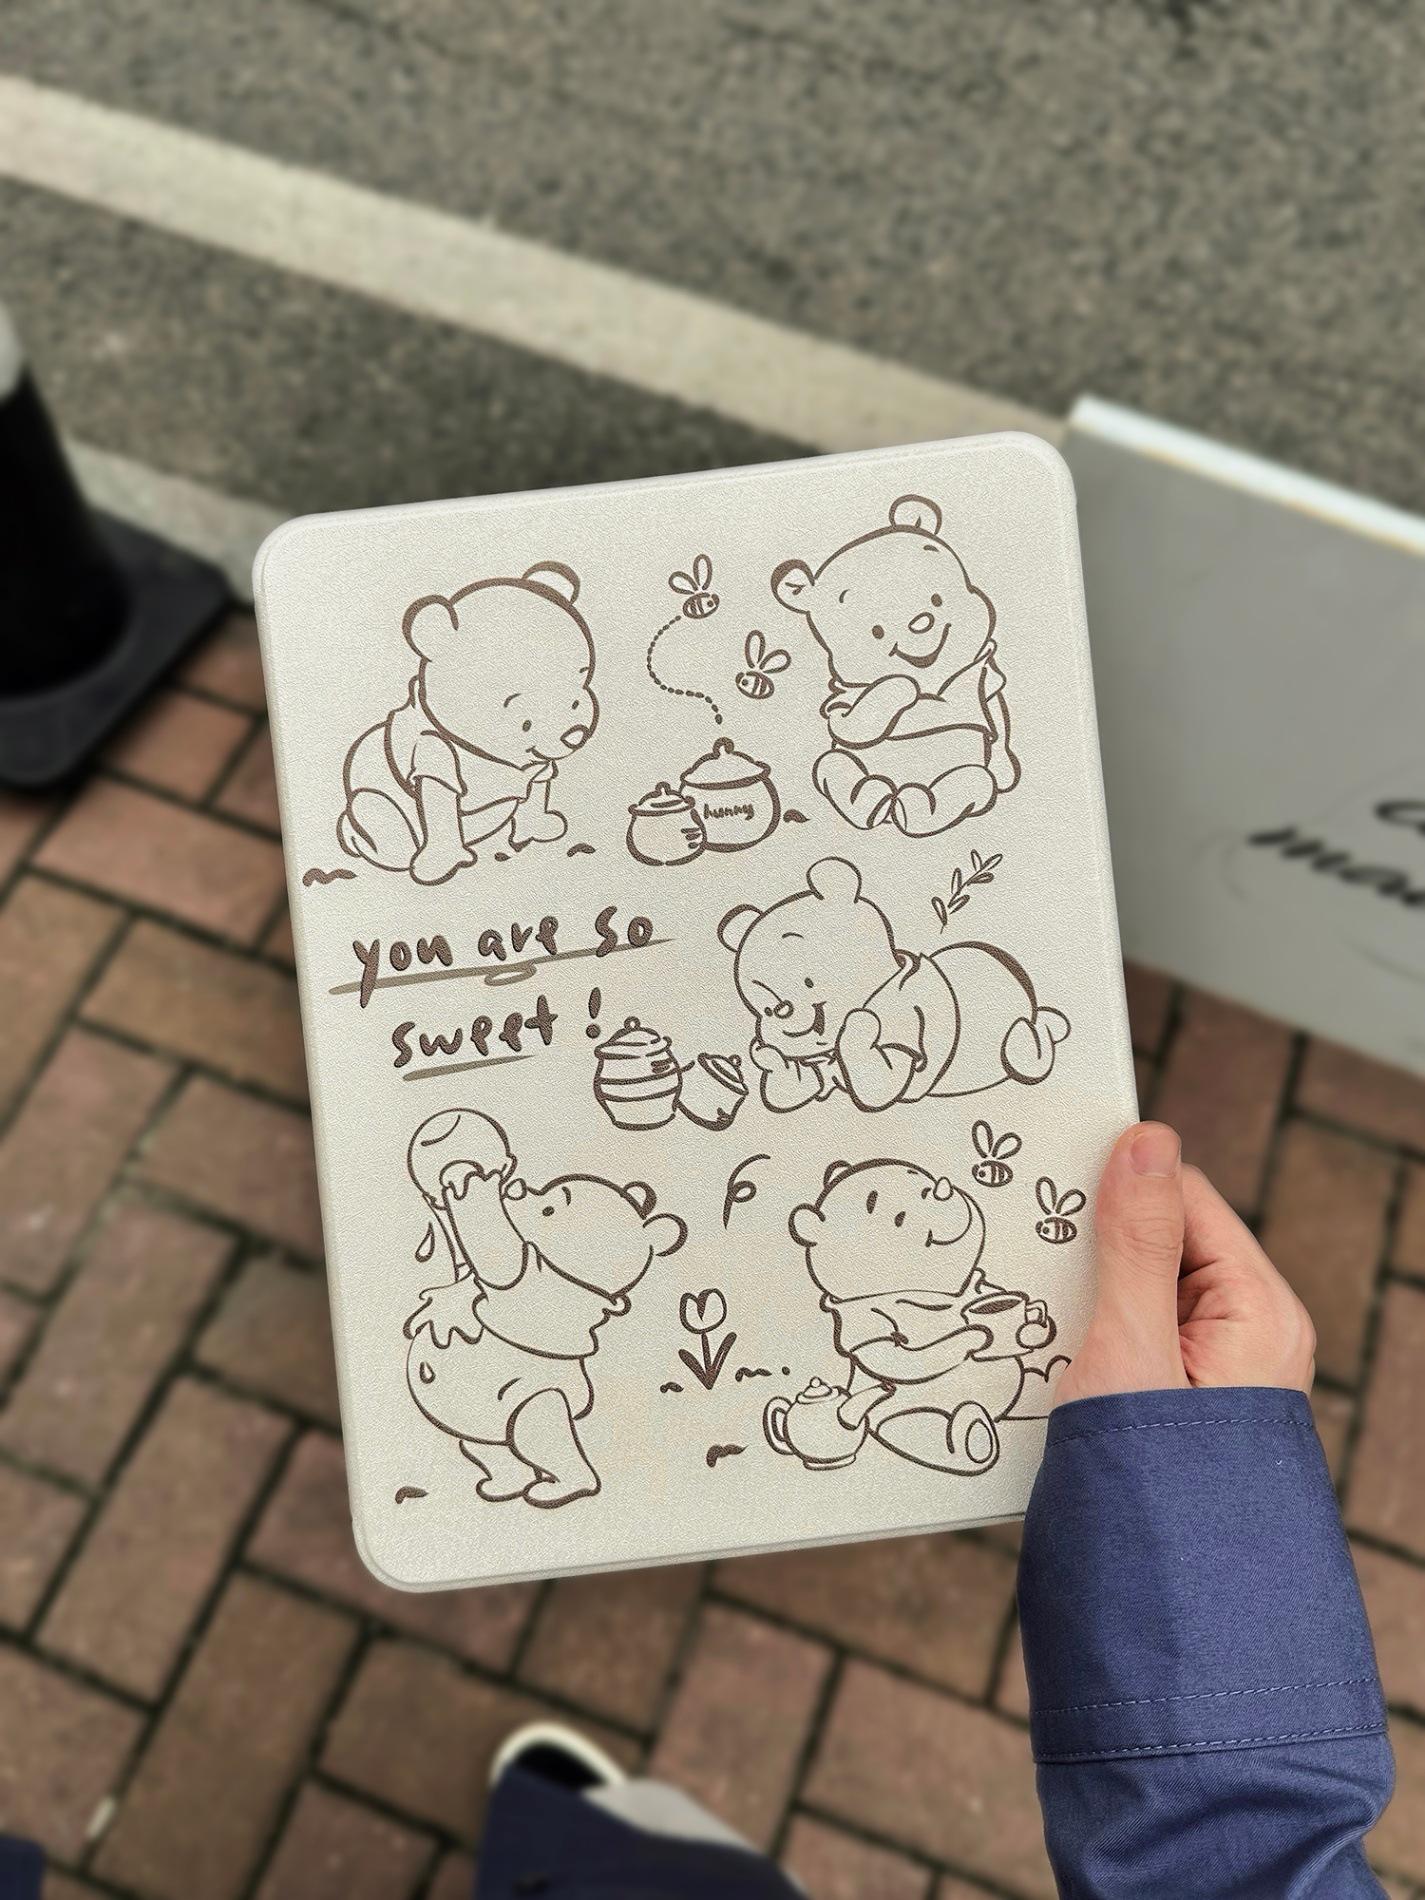 hunny
you are so
sweet !